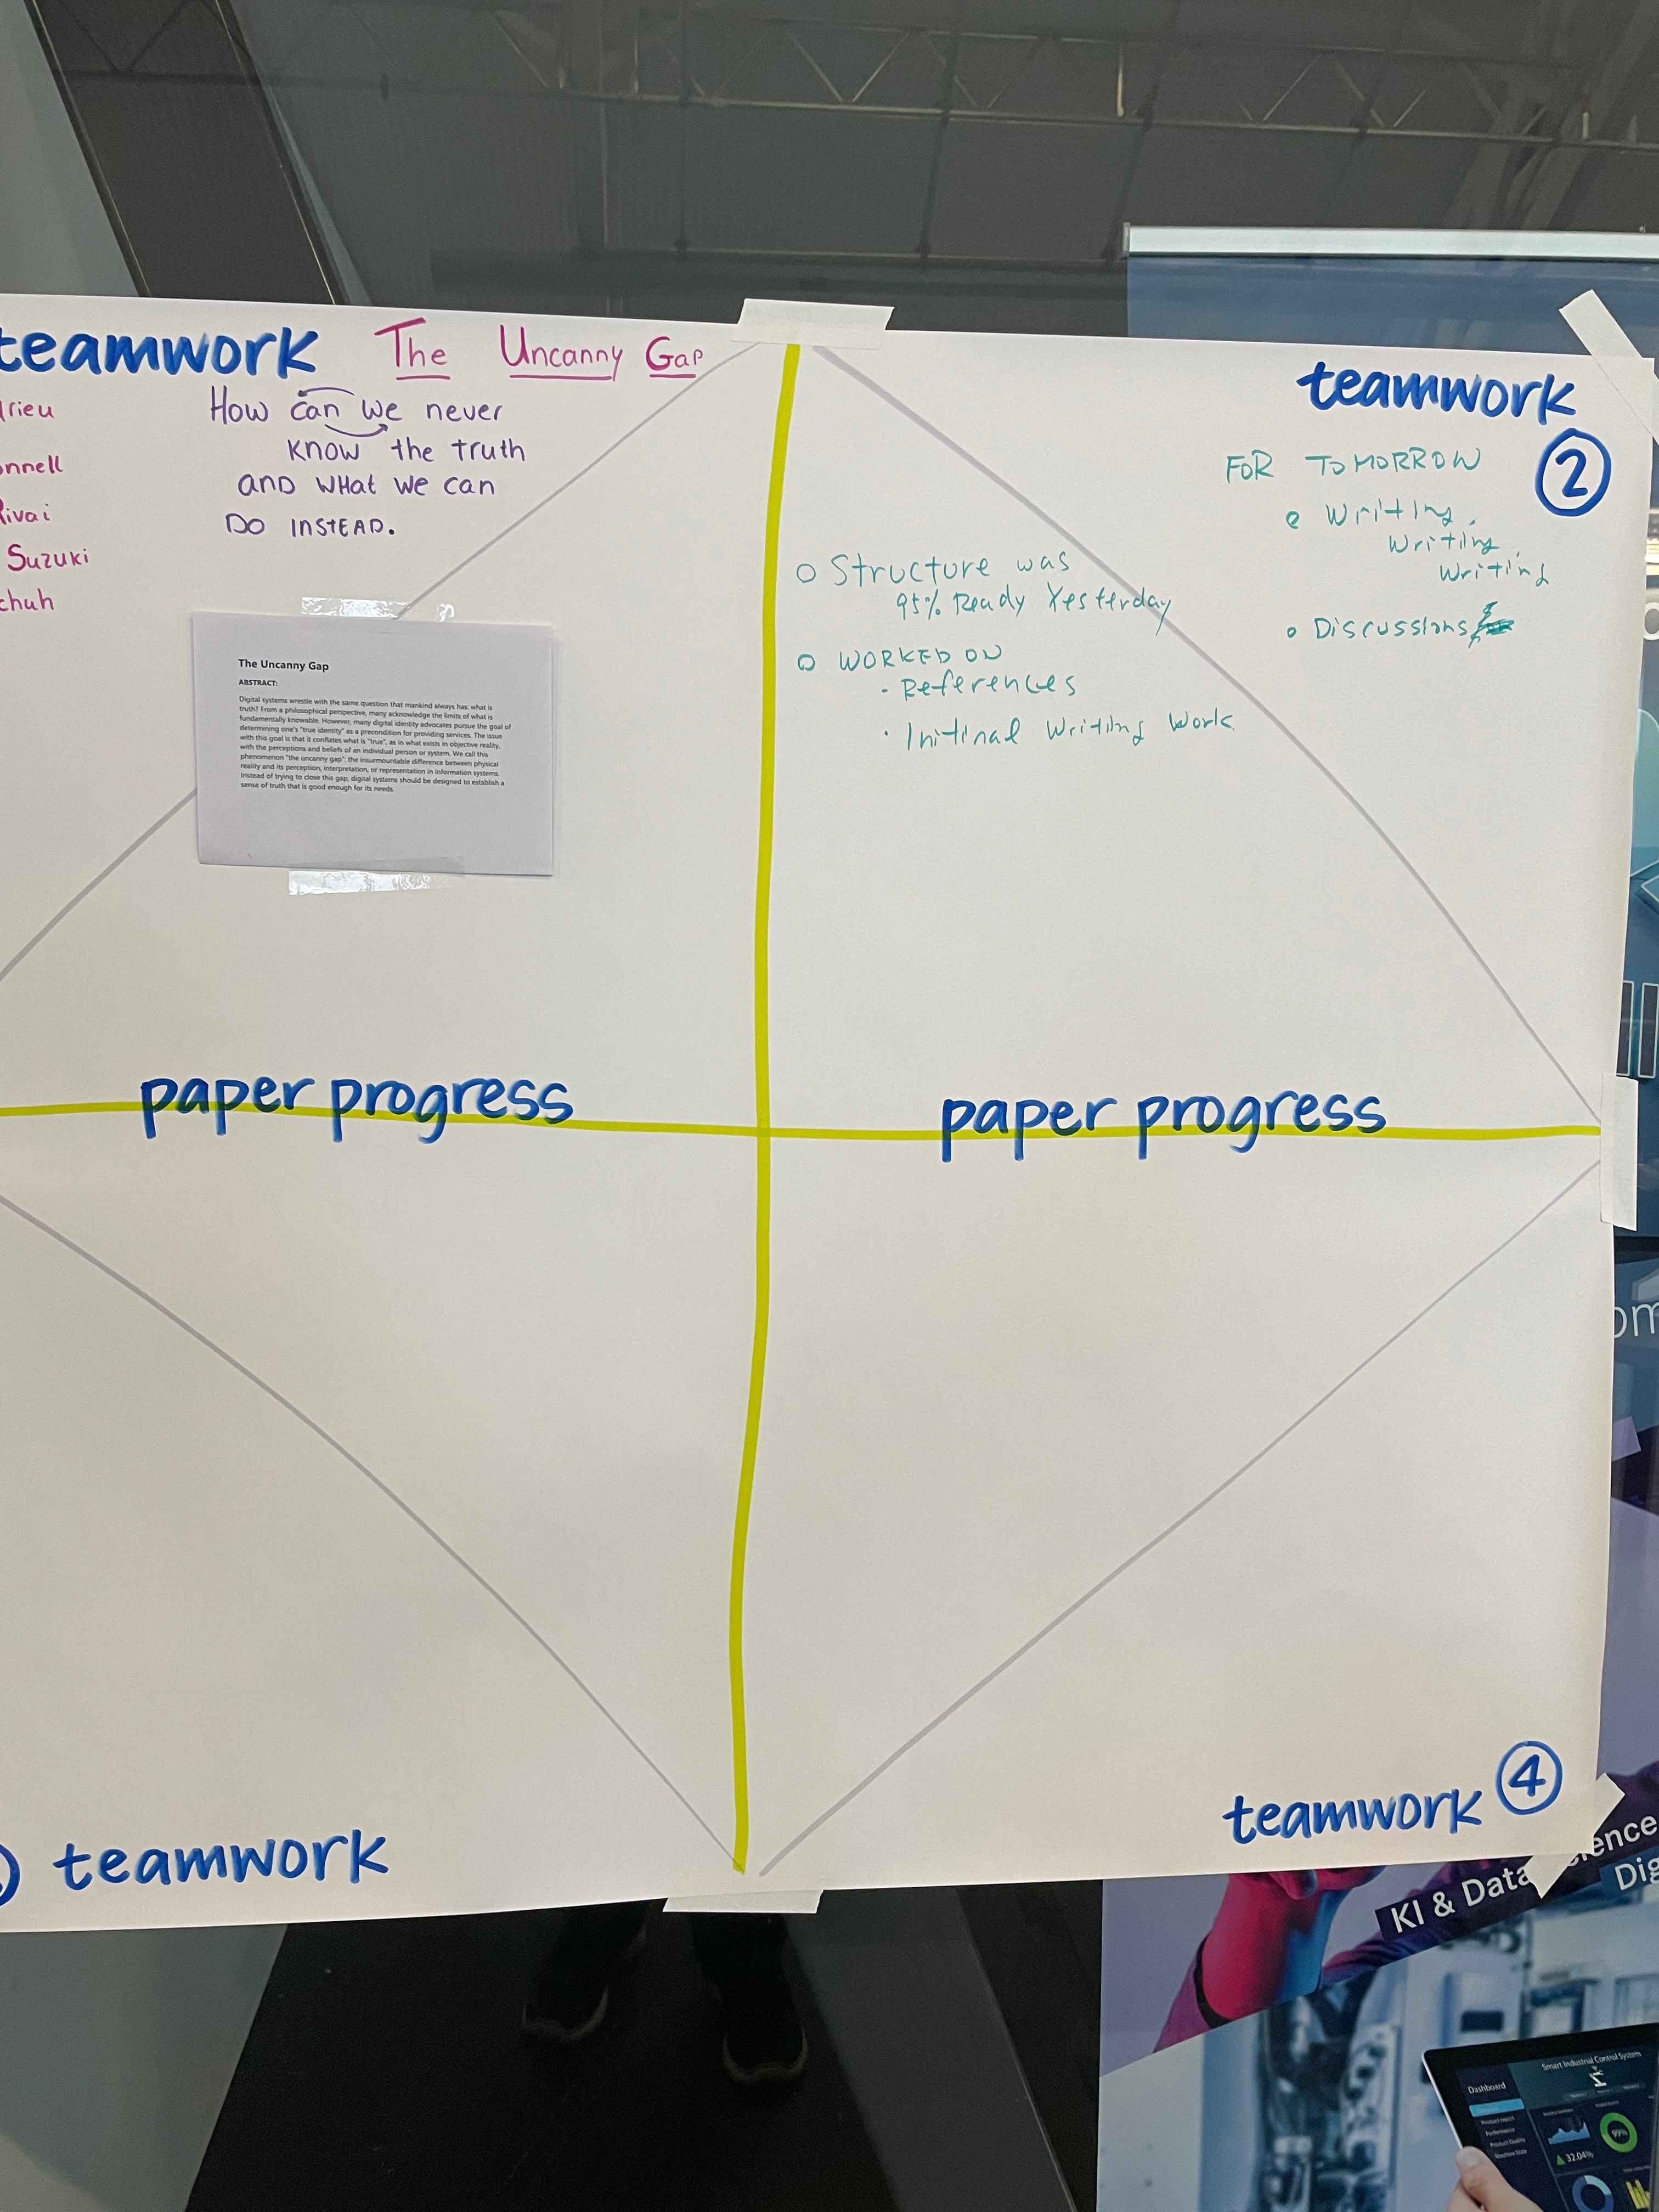 teamwork The Uncanny Gap
How can we never
know the truth
and what we can
DO INSTEAD.
Suzuki
The Uncanny Gap
ABSTRACT:
Digital systems wrestle with the same question that mankind always has: what is
truth? From a philosophical perspective, many acknowledge the limits of what is
fundamentally knowable. However, many digital identity advocates pursue the goal of
determining one's "true identity" as a precondition for providing services. The issue
with this goal is that it conflates what is "true", as in what exists in objective reality,
with the perceptions and beliefs of an individual person or system. We call this
phenomenon "the uncanny gap": the insurmountable difference between physical
reality and its perception, interpretation, or representation in information systems.
Instead of trying to close this gap, digital systems should be designed to establish a
sense of truth that is good enough for its needs.
teamwork
2
FOR TOMORROW
Writing,
Writing,
Writing
Discussions
Structure was
95% Ready Yesterday
WORKED ON
· References
· Initinal Writing Work
paper progress
paper progress
teamwork
teamwork 4
KI & Data
Smart Industrial Control System
Dashboard
99%
32.04%